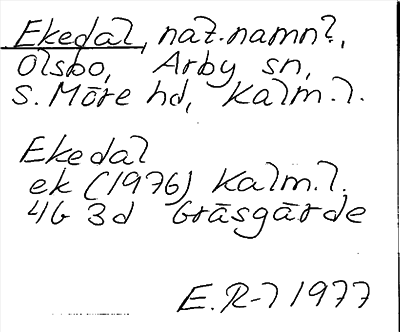 Ekedal, nat.namn?,
Olsbo, Arby sn,
S. Möre hd, Kalm. l.
Ekedal
ek (1976) Kalm. l.
4G 3d Gräsgärde
E. R-7 1977